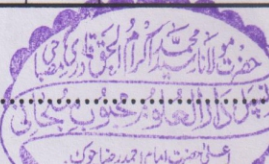 حضرت مولانا سید محمد اکرام الحق قادری مصباحی
پرنسپل دارالعلوم محبوب سبحانی
اعلیٰ حضرت امام احمد رضا چوک